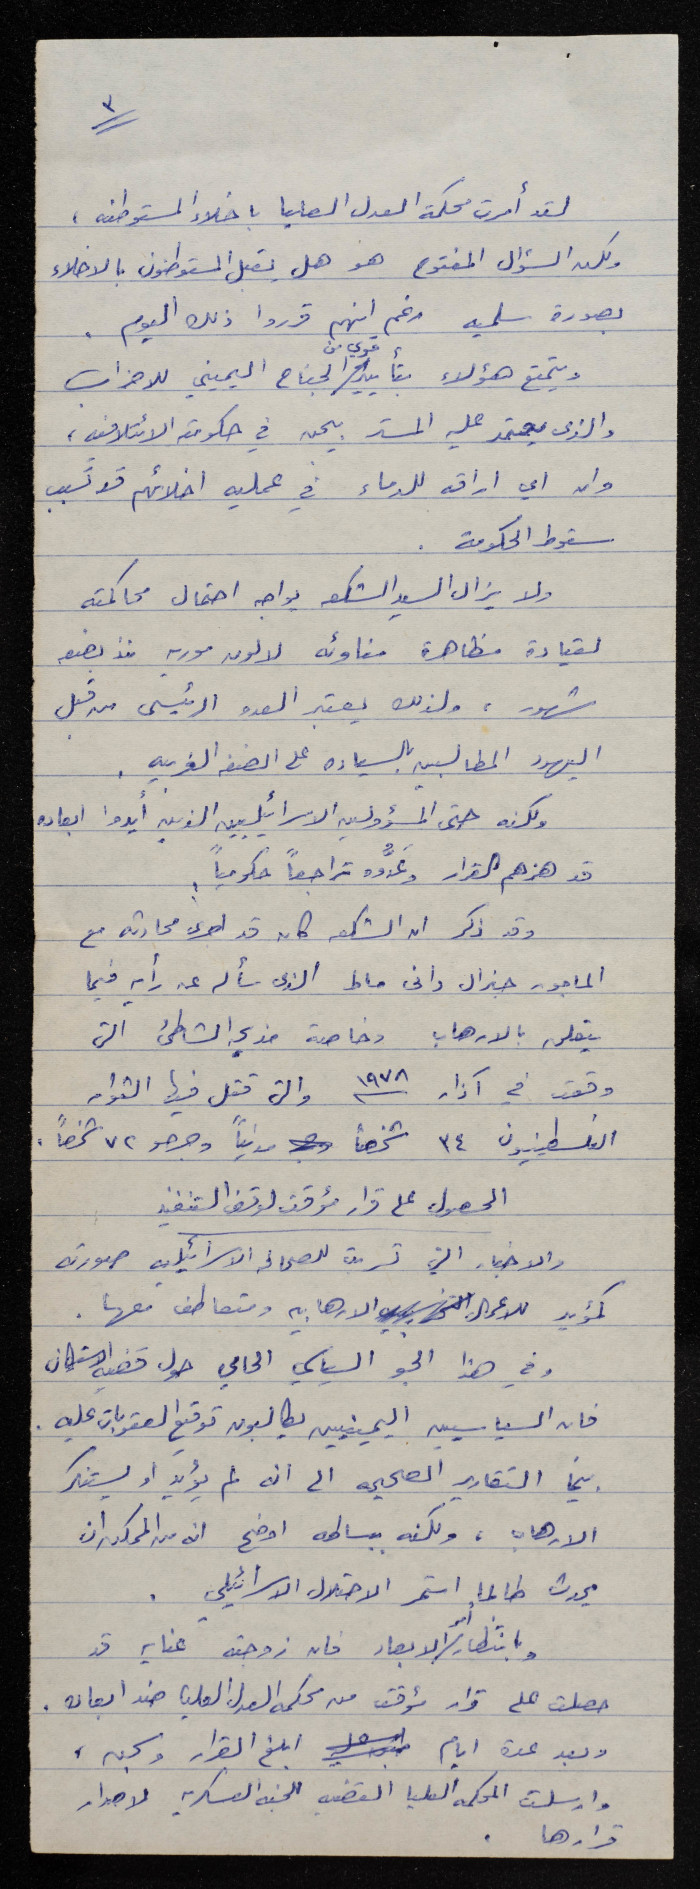 ٣
لقد أمرت محكمة العدل العليا باخلاء المستوطنه ،
ولكن السؤال المفتوح هو هل يقبل المستوطنون بالاخلاء
بصورة سلميه رغم انهم قرروا ذلك اليوم .
قوي من
ويتمتع هؤلاء بتأييد الجناح اليميني للاحزاب
والذي يعتمد عليه المستر بيجن في حكومته الائتلافيه ،
وان اي اراقه للدماء في عمليه اخلائهم قد تسبب
سقوط الحكومة .
ولا يزال السيد الشكعه يواجه احتمال محاكمته
لقيادة مظاهرة مناوئه لالون موريه منذ بضعه
شهور ، ولذلك يعتبر العدو الرئيسي من قبل
اليهود المطالبين بالسياده على الضفه الغربيه .
ولكنه حتى المسؤولين الاسرائيليين الذين أيدوا ابعاده
قد هزهم القرار وعَدُّوه تراجعاً حكومياً .
وقد ذكر ان الشكعه كان قد اجرى محادثه مع
الماجور جنرال داني ماط الذي سأله عن رأيه فيما
يتعلق بالارهاب وخاصة مذبحه الشاطئ التي
وقعت في آذار ١٩٧٨ والتي قتل فيها الثوار
الفلسطينيون ٣٤ شخصاً مدنياً وجرحو ٧٢ شخصاً .
الحصول على قرار مؤقت لوقف التنفيذ
والاخبار التي تسربت للصحافه الاسرائيليه صورته
كمؤيد للاعمال الارهابيه ومتعاطف معها .
وفي هذا الجو السياسي الحامي حول قضيه الاستيطان
فان السياسيين اليمينيين يطالبون توقيع العقوبات عليه .
بينما التقارير الصحيحه الى انه لم يؤيد او يستنكر
الارهاب ، ولكنه ببساطه اوضح انه من الممكن ان
يحدث طالما استمر الاحتلال الاسرائيلي .
أمر
وبانتظار الابعاد فان زوجته عنايه قد
حصلت على قرار مؤقت من محكمه العدل العليا ضد ابعاده .
وبعد عدة ايام ابلغ القرار وسجن ،
وارسلت المحكمه العليا القضيه للجنه العسكريه لاصدار
قرارها .